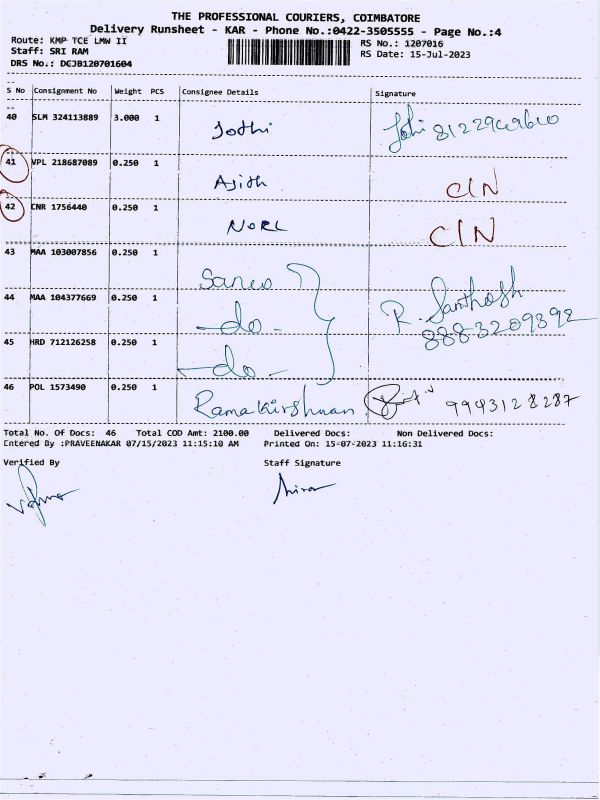 THE PROFESSIONAL COURIERS, COIMBATORE
Delivery Runsheet - KAR - Phone No.:0422-3505555 - Page No.:4
Route: KMP TCE LMW II
RS No.: 1207016
Staff: SRI RAM
RS Date: 15-Jul-2023
DRS No.: DCJB120701604
S No Consignment No Weight PCS Consignee Details Signature
40 SLM 324113889 3.000 1 Jothi
41 VPL 218687089 0.250 1 Ajith CIN
42 CNR 1756440 0.250 1 NORL CIN
43 MAA 103007856 0.250 1 Sanco
44 MAA 104377669 0.250 1 -do- R. Santhosh
8883209392
45 HRD 712126258 0.250 1 -do-
46 POL 1573490 0.250 1 Ramakirshnan 9943128287
Total No. Of Docs: 46 Total COD Amt: 2100.00 Delivered Docs: Non Delivered Docs:
Entered By :PRAVEENAKAR 07/15/2023 11:15:10 AM Printed On: 15-07-2023 11:16:31
Verified By Staff Signature